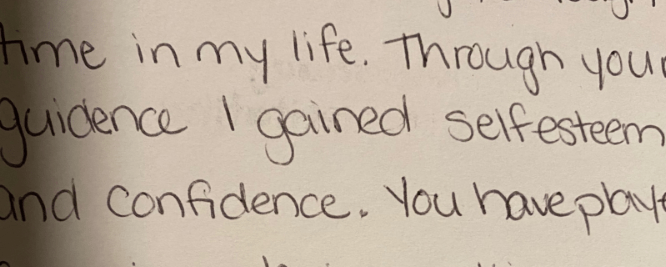 time in my life. Through your
guidence I gained selfesteem
and confidence. You have